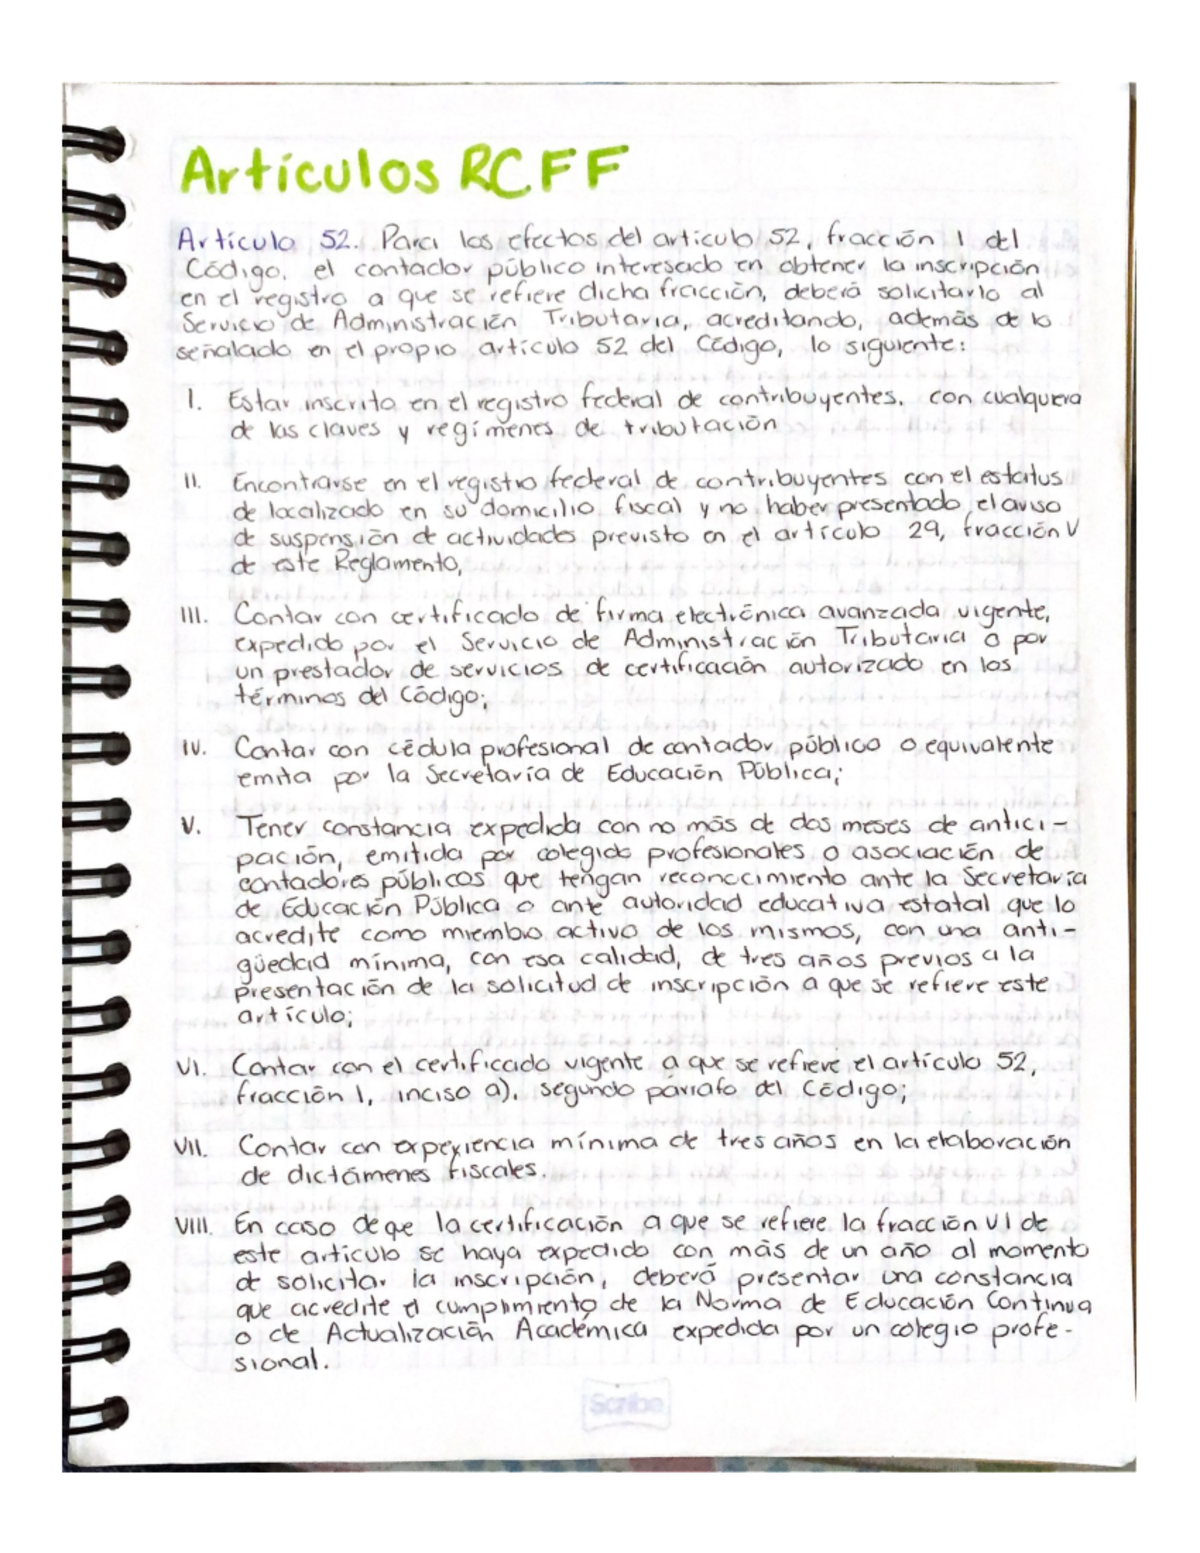 Artículos RCFF
Artículo 52. Para los efectos del artículo 52, fracción I del
Código, el contador público interesado en obtener la inscripción
en el registro a que se refiere dicha fracción, deberá solicitarlo al
Servicio de Administración Tributaria, acreditando, además de lo
señalado en el propio artículo 52 del Código, lo siguiente:
I. Estar inscrito en el registro federal de contribuyentes, con cualquera
de las claves y regímenes de tributación
II. Encontrarse en el registro federal de contribuyentes con el estatus
de localizado en su domicilio fiscal y no haber presentado el aviso
de suspensión de actividades previsto en el artículo 29, fracción V
de este Reglamento,
III. Contar con certificado de firma electrónica avanzada vigente,
expedido por el Servicio de Administración Tributaria o por
un prestador de servicios de certificación autorizado en los
términos del Código;
IV. Contar con cédula profesional de contador público o equivalente
emita por la Secretaría de Educación Pública;
V. Tener constancia expedida con no más de dos meses de antici-
pación, emitida por colegido profesionales o asociación de
contadores públicos que tengan reconocimiento ante la Secretaría
de Educación Pública o ante autoridad educativa estatal que lo
acredite como miembro activo de los mismos, con una anti-
güedad mínima, con esa calidad, de tres años previos a la
presentación de la solicitud de inscripción a que se refiere este
artículo;
VI. Contar con el certificado vigente a que se refiere el artículo 52,
fracción I, inciso a), segundo párrafo del Código;
VII. Contar con experiencia mínima de tres años en la elaboración
de dictámenes fiscales.
VIII. En caso de que la certificación a que se refiere la fracción VI de
este artículo se haya expedido con más de un año al momento
de solicitar la inscripción, deberá presentar una constancia
que acredite el cumplimiento de la Norma de Educación Continua
o de Actualización Académica expedida por un colegio profe-
sional.
Scribe